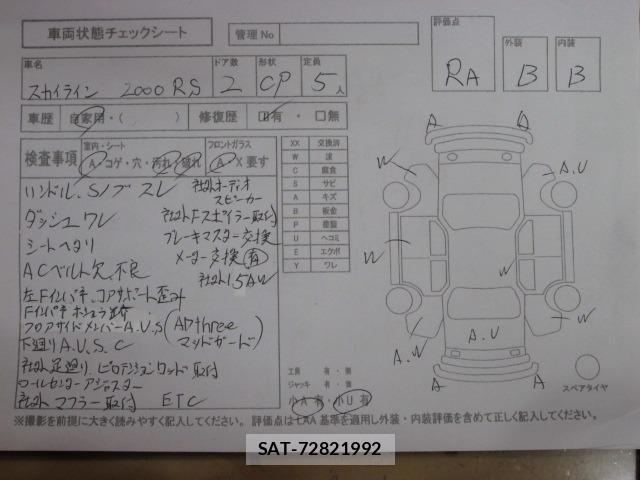 車両状態チェックシート
管理No
評価点
RA
外装
B
内装
B
車名
スカイライン 2000 RS
ドア数
2
形状
CP
定員
5人
車歴 自家用・( )
修復歴 有・無
検査事項
室内・シート
A コゲ・穴・汚れ・破れ
フロントガラス
A X要す
ハンドル、S/ブ スレ
ダッシュ ワレ
シートヘタリ
ACベルト欠、不良
左Fインパネ、コアサポート歪み
フロアサイドメンバーA.U.S
下廻りA.U.S.C
社外 足廻り、ピロテンションロッド 取付
ロールセンターアジャスター
社外 マフラー取付 ETC
社外オーディオ
スピーカー
社外Fスポイラー取付
ブレーキマスター交換
メーター交換 有
社外15AW
(ADthree
マッドガード)
XX 交換済
W 波
C 腐食
S サビ
A キズ
B 板金
P 塗装
U ヘコミ
E エクボ
Y ワレ
A
A
W
A.U
W
W
W
A.U
A.W
A
A
スペアタイヤ
工具 有・無
ジャッキ 有・無
小A 有・小U 有
※撮影を前提に大きく読みやすく記入してください。 評価点はLAA基準を適用し外装・内装評価を含めて正しく記入してください。
SAT-72821992